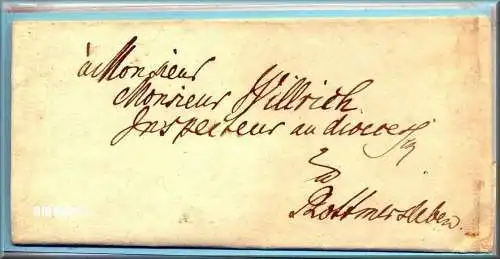 à Monsieur
Monsieur Willrich
Inspecteur au diocese
à
Rottmersleben.